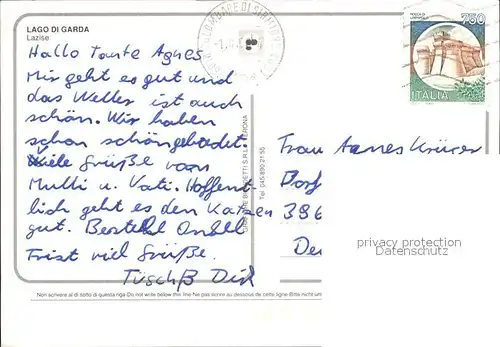 LAGO DI GARDA
Lazise
Hallo Tante Agnes
Mir geht es gut und
das Wetter ist auch
schön. Wir haben
schon schön gebadet.
Viele Grüße von
Mutti u. Vati. Hoffent-
lich geht es den Katzen
gut. Bestell Onkel
Viel Grüße.
Tschüß Dirk
Frau Agnes Krüger
Dorf
386
De
750
ITALIA
Tel. 045/890 21 55
privacy protection
Datenschutz
Non scrivere al di sotto di questa riga Do not write below this line Ne pas écrire au dessous de cette ligne Bitte nicht un